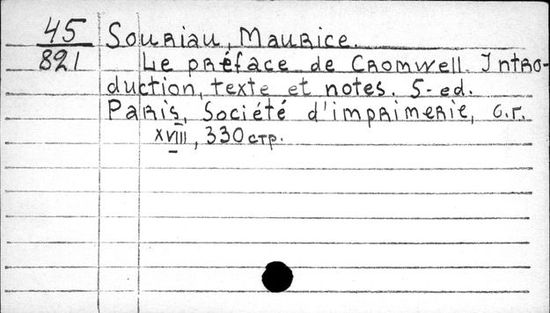 45 Souriau, Maurice.
821 Le préface de Cromwell. Intro-
duction, texte et notes. 5-ed.
Paris, Société d'imprimerie, с.г.
XVIII, 330 стр.